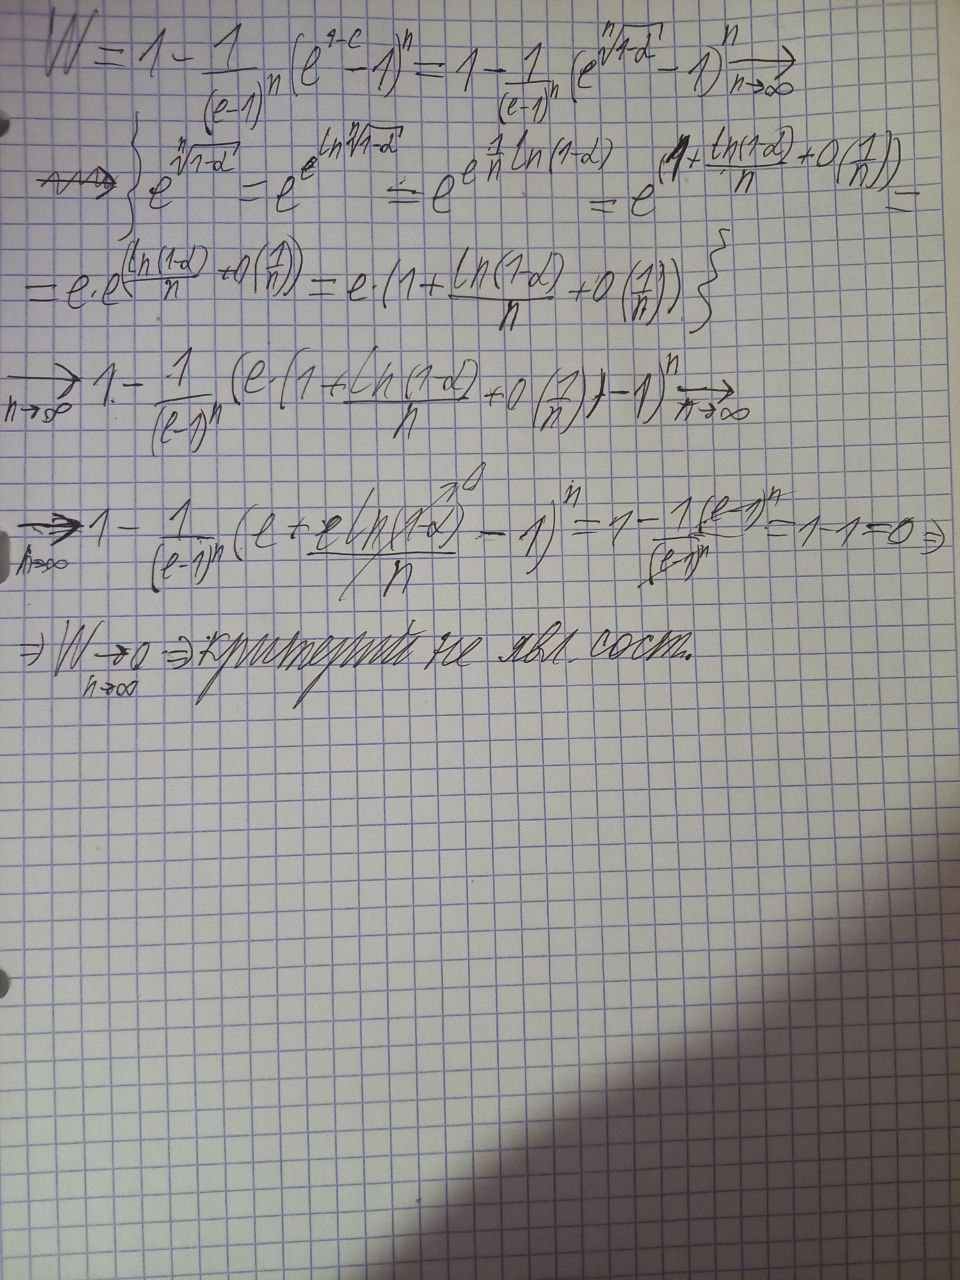 W = 1 - 1/(e-1)^n (e^{1-c} - 1)^n = 1 - 1/(e-1)^n (e^{ⁿ√(1-α)} - 1)^n →_{n→∞}
{ e^{ⁿ√(1-α)} = e^{e^{ln ⁿ√(1-α)}} = e^{e^{1/n ln(1-α)}} = e^{(1 + ln(1-α)/n + o(1/n))} =
= e · e^{(ln(1-α)/n + o(1/n))} = e · (1 + ln(1-α)/n + o(1/n)) }
→_{n→∞} 1 - 1/(e-1)^n (e · (1 + ln(1-α)/n + o(1/n)) - 1)^n →_{n→∞}
→_{n→∞} 1 - 1/(e-1)^n (e + e ln(1-α)/n → 0 - 1)^n = 1 - 1(e-1)^n/(e-1)^n = 1 - 1 = 0 ⇒
⇒ W →_{n→∞} 0 ⇒ критерий не явл. сост.